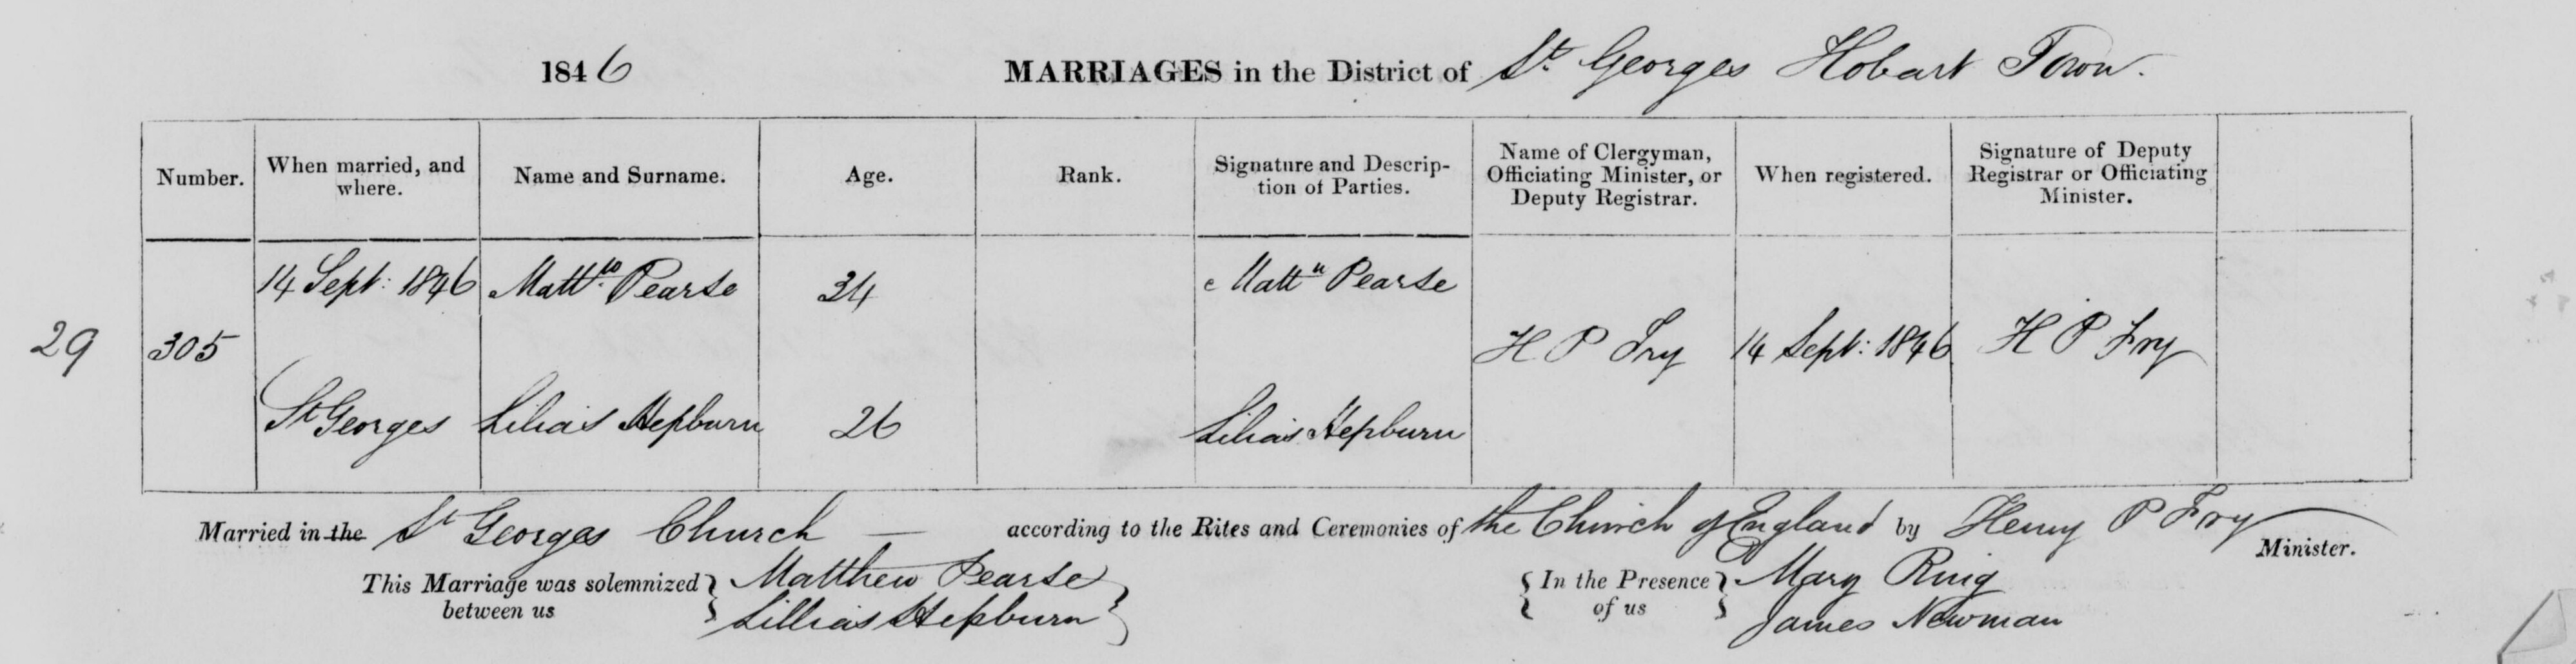 1846 MARRIAGES in the District of St. Georges Hobart Town.
Number. When married, and where. Name and Surname. Age. Rank. Signature and Description of Parties. Name of Clergyman, Officiating Minister, or Deputy Registrar. When registered. Signature of Deputy Registrar or Officiating Minister.
14 Sept: 1846 Matt.w Pearse 34 Mattw Pearse
29 305 H P Fry 14 Sept: 1846 H P Fry
St Georges Lilias Hepburn 26 Lilias Hepburn
Married in the St Georges Church — according to the Rites and Ceremonies of the Church of England by Henry P Fry Minister.
This Marriage was solemnized between us { Matthew Pearse } { In the Presence of us } Mary Ring
Lillias Hepburn James Newman